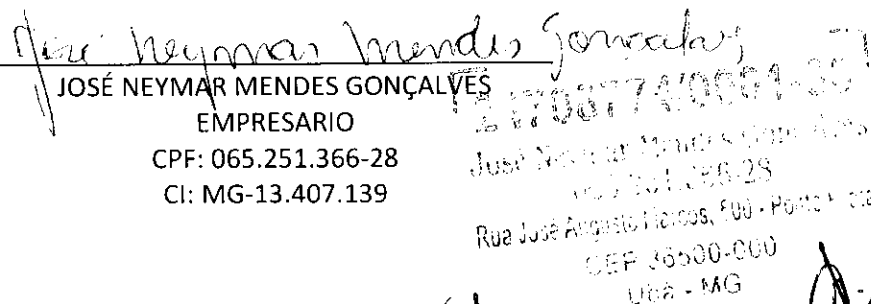 José Neymar Mendes Gonçalves
JOSÉ NEYMAR MENDES GONÇALVES
EMPRESARIO
CPF: 065.251.366-28
CI: MG-13.407.139
José
Rua José Augusto
CEP 36500-000
Ubá - MG